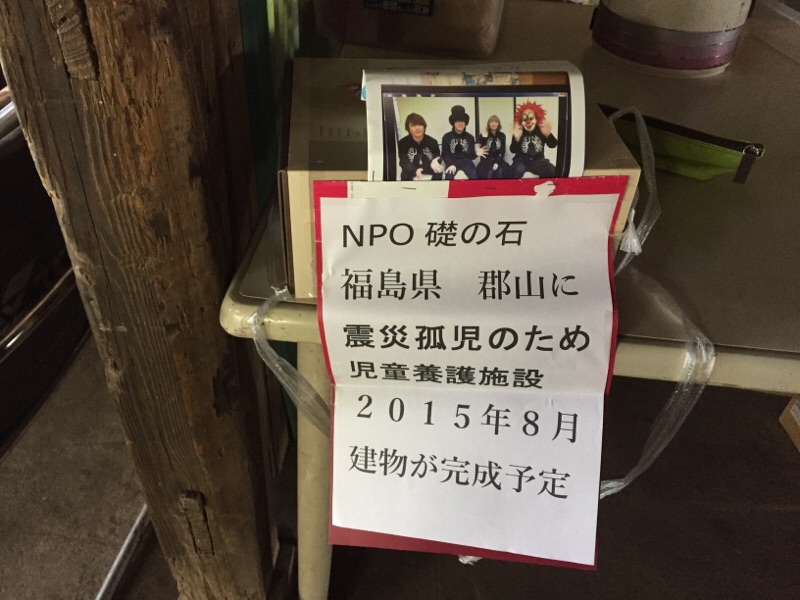 NPO 礎の石
福島県　郡山に
震災孤児のため
児童養護施設
２０１５年８月
建物が完成予定